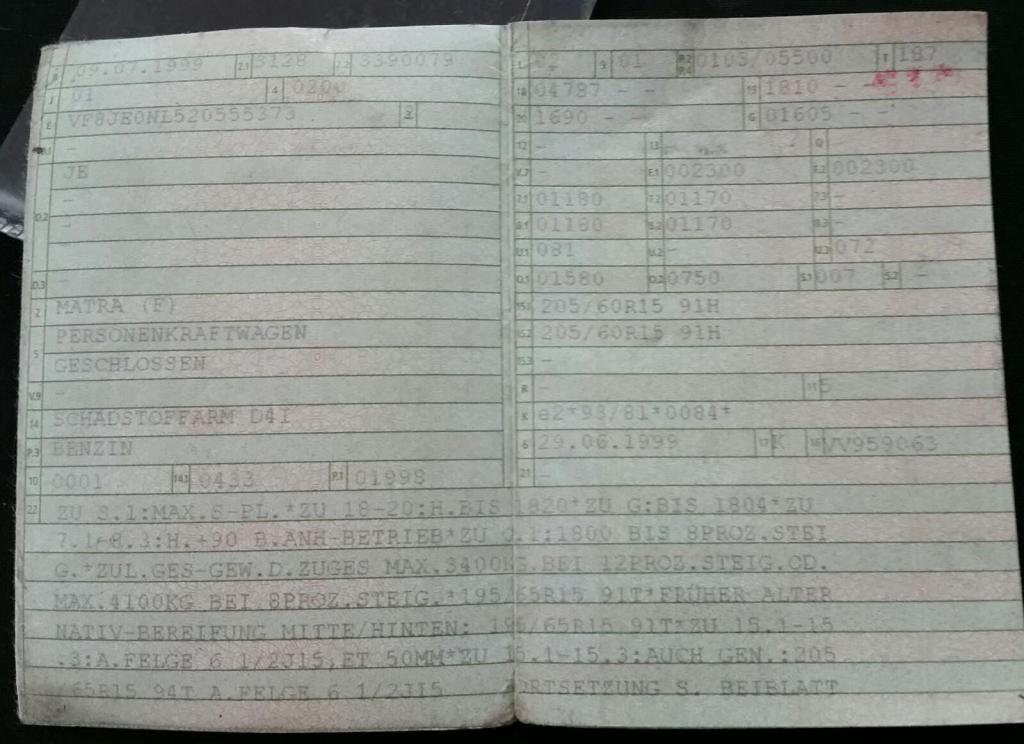 B 09.07.1999 2.1 3128 2.2 3390079
J 01 4 0200
E VF8JE0NL520555373 3
-
JE
D.2 -
-
D.3 -
2 MATRA (F)
5 PERSONENKRAFTWAGEN
GESCHLOSSEN
V.9 -
14 SCHADSTOFFARM D4I
P.3 BENZIN
10 0001 14.1 0433 P.1 01998
L 02 9 01 P.2 P.4 0103/05500 T 187
18 04787 - - 19 1810 - -
20 1690 - - G 01605 - -
12 - 13 - Q -
V.7 - F.1 002300 F.2 002300
7.1 01180 7.2 01170 7.3 -
8.1 01180 8.2 01170 8.3 -
U.1 081 U.2 - U.3 072
O.1 01580 O.2 0750 S.1 007 S.2 -
15.1 205/60R15 91H
15.2 205/60R15 91H
15.3 -
R - 11 5
K e2*93/81*0084*
6 29.06.1999 17 K 16 VV959063
21 -
22 ZU S.1:MAX.S-PL.*ZU 18-20:H.BIS 1820*ZU G:BIS 1804*ZU
7.1-8.3:H.+90 B.ANH-BETRIEB*ZU O.1:1800 BIS 8PROZ.STEI
G.*ZUL.GES-GEW.D.ZUGES MAX.3400KG BEI 12PROZ.STEIG.OD.
MAX.4100KG BEI 8PROZ.STEIG.*195/65R15 91T*FRÜHER ALTER
NATIV-BEREIFUNG MITTE/HINTEN: 195/65R15 91T*ZU 15.1-15
.3:A.FELGE 6 1/2J15,ET 50MM*ZU 15.1-15.3:AUCH GEN.:205
/65R15 94T A.FELGE 6 1/2J15 FORTSETZUNG S. BEIBLATT